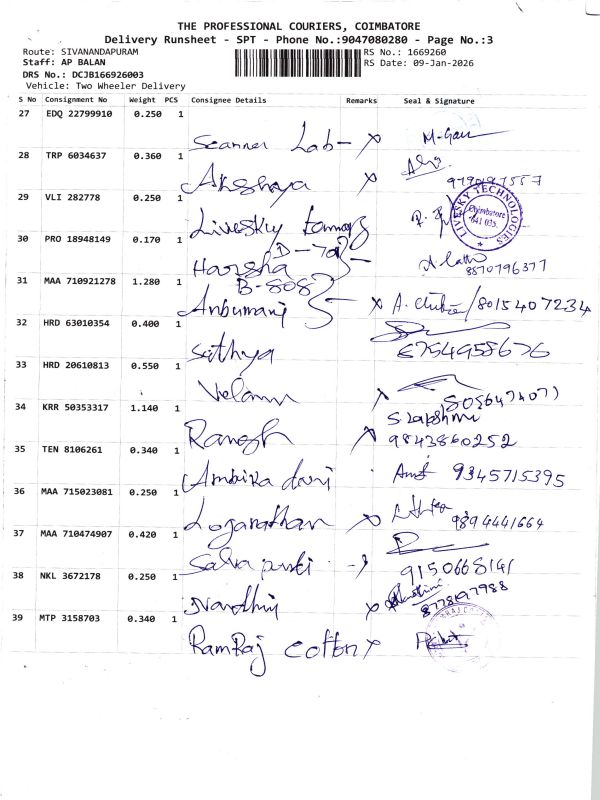 THE PROFESSIONAL COURIERS, COIMBATORE
Delivery Runsheet - SPT - Phone No.:9047080280 - Page No.:3
Route: SIVANANDAPURAM RS No.: 1669260
Staff: AP BALAN RS Date: 09-Jan-2026
DRS No.: DCJB166926003
Vehicle: Two Wheeler Delivery
S No Consignment No Weight PCS Consignee Details Remarks Seal & Signature
27 EDQ 22799910 0.250 1
Scanner Lab - x
28 TRP 6034637 0.360 1
Akshaya x
29 VLI 282778 0.250 1
LIVESKY TECHNOLOGIES
Coimbatore
641 035.
Livesky
30 PRO 18948149 0.170 1
Harsha
8870796377
31 MAA 710921278 1.280 1
B-808
Anbumani x 8015407234
32 HRD 63010354 0.400 1
Sathya
33 HRD 20610813 0.550 1
34 KRR 50353317 1.140 1
Ramesh 9843860252
35 TEN 8106261 0.340 1
Ambika 9345715395
36 MAA 715023081 0.250 1
Loganathan x 9894441664
37 MAA 710474907 0.420 1
9150668141
38 NKL 3672178 0.250 1
Nandhini x
39 MTP 3158703 0.340 1
RamRaj Cotton x